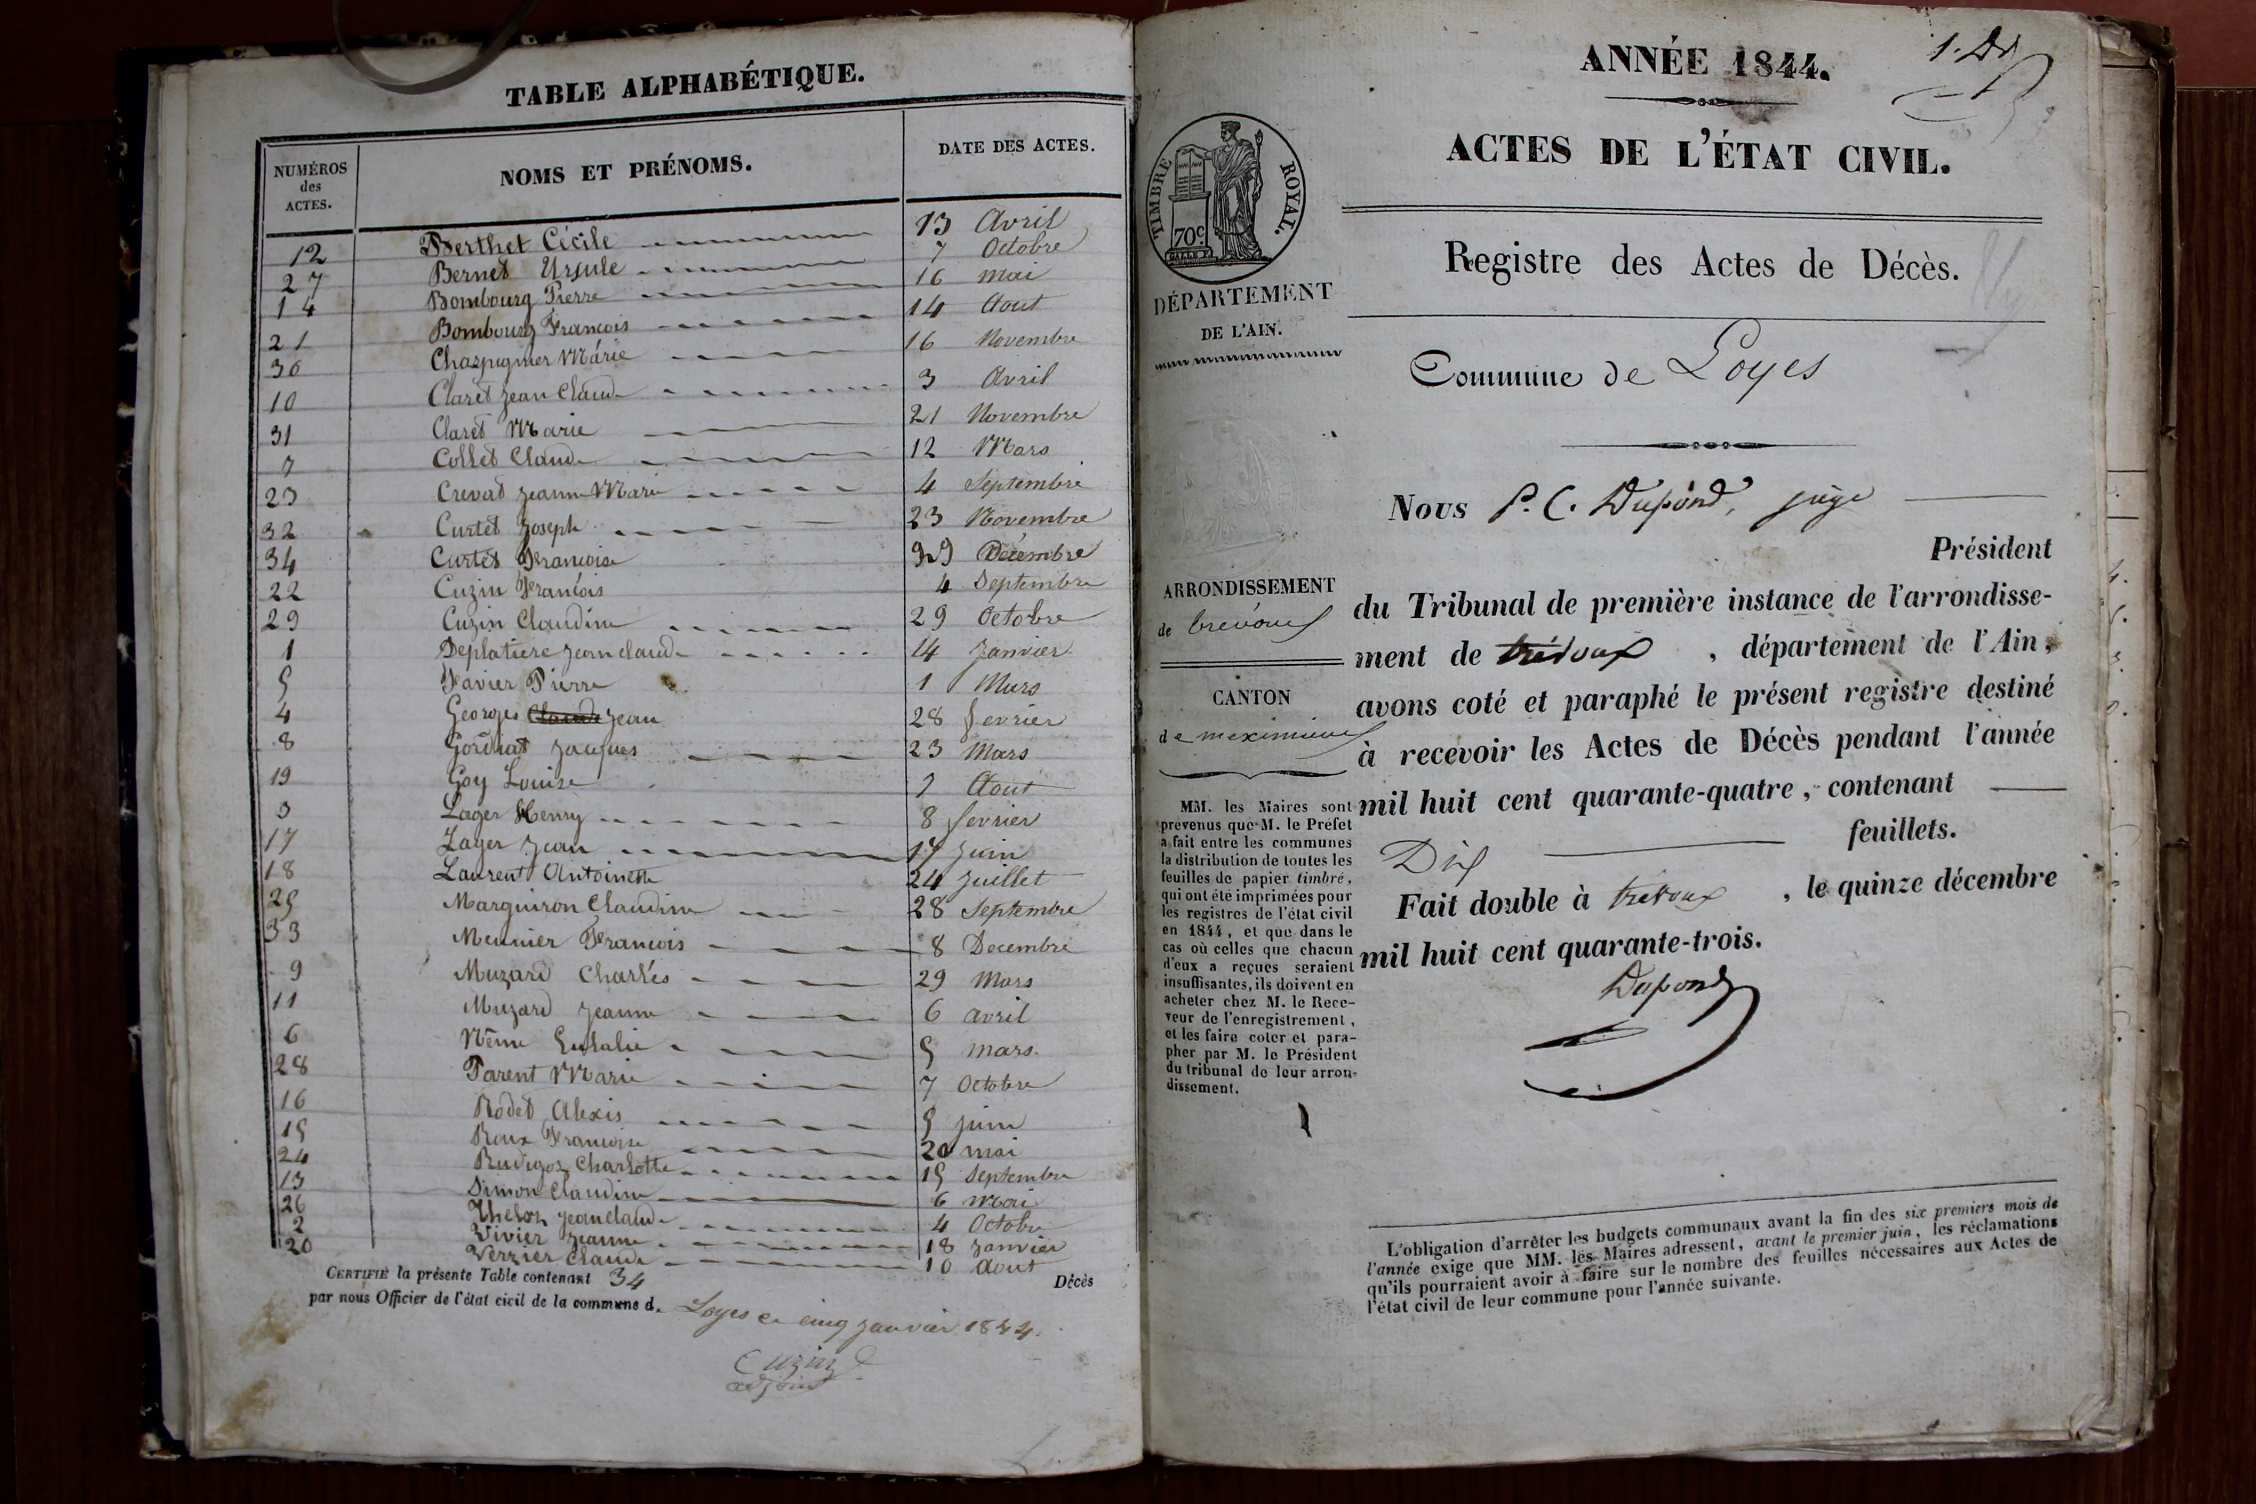 TABLE ALPHABÉTIQUE.
NUMÉROS des ACTES. NOMS ET PRÉNOMS. DATE DES ACTES.
12 Berthet Cécile 13 Avril
27 Bernet Ursule 7 Octobre
14 Bombourg Pierre 16 mai
21 Bombourg François 14 Aout
30 Charpignier Marie 16 Novembre
10 Claret Jean Claude 3 Avril
31 Claret Marie 21 Novembre
7 Collet Claude 12 Mars
23 Crevat Jeanne Marie 4 Septembre
32 Curtet Joseph 23 Novembre
34 Curtet Françoise 29 Décembre
22 Cuzin François 4 Septembre
29 Cuzin Claudine 29 Octobre
1 Deplatiere Jean claude 14 Janvier
5 Favier Pierre 1 Mars
4 Georges Claude Jean 28 fevrier
8 Gordiat Jacques 23 Mars
19 Goy Louise 7 Aout
3 Lager Henry 8 fevrier
17 Lager Jean 17 Juin
18 Laurent Antoinette 24 Juillet
25 Marguiron Claudine 28 Septembre
33 Meunier François 8 Decembre
9 Muzard Charles 29 Mars
11 Muzard Jeanne 6 avril
6 Eulalie 5 mars
28 Parent Marie 7 Octobre
16 Rodet Alexis 5 juin
15 Roux Françoise 20 mai
24 Rudigoz Charlotte 15 Septembre
13 Simon Claudine 6 Mai
26 Thelon Jean claude 4 Octobre
2 Vivier Jeanne 18 Janvier
20 Verzier Claude 10 Aout
CERTIFIÉ la présente Table contenant 34 Décès
par nous Officier de l'état civil de la commune d. Loyes ce cinq Janvier 1844.
Cuzin
adjoint
ANNÉE 1844.
ACTES DE L'ÉTAT CIVIL.
TIMBRE ROYAL.
70c.
DÉPARTEMENT
DE L'AIN.
Registre des Actes de Décès.
Commune de Loyes
Nous P. C. Dupond, juge
Président
du Tribunal de première instance de l'arrondisse-
ment de trévoux , département de l'Ain,
avons coté et paraphé le présent registre destiné
à recevoir les Actes de Décès pendant l'année
mil huit cent quarante-quatre, contenant
Dix feuillets.
Fait double à trévoux , le quinze décembre
mil huit cent quarante-trois.
Dupond
ARRONDISSEMENT
de trévoux
CANTON
de meximieux
MM. les Maires sont
prévenus que M. le Préfet
a fait entre les communes
la distribution de toutes les
feuilles de papier timbré,
qui ont été imprimées pour
les registres de l'état civil
en 1844, et que dans le
cas où celles que chacun
d'eux a reçues seraient
insuffisantes, ils doivent en
acheter chez M. le Rece-
veur de l'enregistrement,
et les faire coter et para-
pher par M. le Président
du tribunal de leur arron-
dissement.
L'obligation d'arrêter les budgets communaux avant la fin des six premiers mois de
l'année exige que MM. les Maires adressent, avant le premier juin, les réclamations
qu'ils pourraient avoir à faire sur le nombre des feuilles nécessaires aux Actes de
l'état civil de leur commune pour l'année suivante.